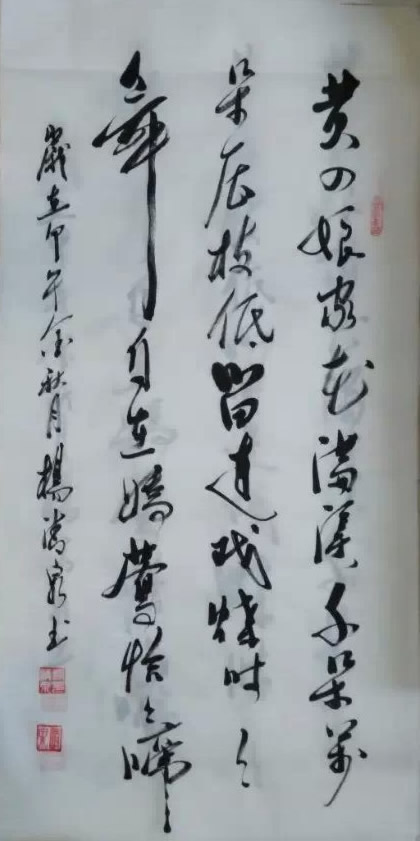 黄四娘家花满溪千朵万
朵压枝低留连戏蝶时々
舞自在娇莺恰々啼
岁在甲午金秋月杨涛泉书